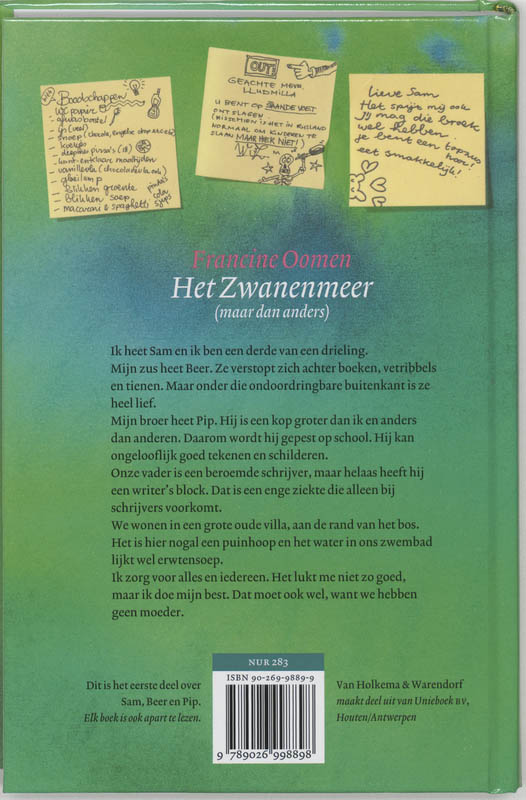 Boodschappen
wc papier
afwasborstel
ijs (veel)
koekjes
diepvries pizza's (18)
kant-en-klaar maaltijden
vanillevla (chocoladevla ook)
gloeilamp
blikken groente
blikken soep
macaroni & spaghetti
pinda's
cola
sjips
OUT!
GEACHTE MEVR.
LLUDMILLA
U BENT OP STAANDE VOET
ONTSLAGEN
(MISSCHIEN IS HET IN RUSLAND
NORMAAL OM KINDEREN TE
SLAAN, MAAR HIER NIET!)
Lieve Sam
Het spijt mij ook
Jij mag die broek
wel hebben.
je bent een topzus
hoor!
eet smakkelijk!
Francine Oomen
Het Zwanenmeer
(maar dan anders)
Ik heet Sam en ik ben een derde van een drieling.
Mijn zus heet Beer. Ze verstopt zich achter boeken, vetribbels
en tienen. Maar onder die ondoordringbare buitenkant is ze
heel lief.
Mijn broer heet Pip. Hij is een kop groter dan ik en anders
dan anderen. Daarom wordt hij gepest op school. Hij kan
ongelooflijk goed tekenen en schilderen.
Onze vader is een beroemde schrijver, maar helaas heeft hij
een writer's block. Dat is een enge ziekte die alleen bij
schrijvers voorkomt.
We wonen in een grote oude villa, aan de rand van het bos.
Het is hier nogal een puinhoop en het water in ons zwembad
lijkt wel erwtensoep.
Ik zorg voor alles en iedereen. Het lukt me niet zo goed,
maar ik doe mijn best. Dat moet ook wel, want we hebben
geen moeder.
Dit is het eerste deel over
Sam, Beer en Pip.
Elk boek is ook apart te lezen.
NUR 283
ISBN 90-269-9889-9
9 789026 998898
Van Holkema & Warendorf
maakt deel uit van Unieboek BV,
Houten/Antwerpen